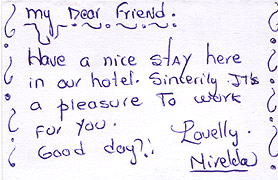 My Dear Friend.
Have a nice STAY here
in our hotel. Sincerily. It's
a pleasure To work
For you.
Good day?!
Lovelly.
Mirelda